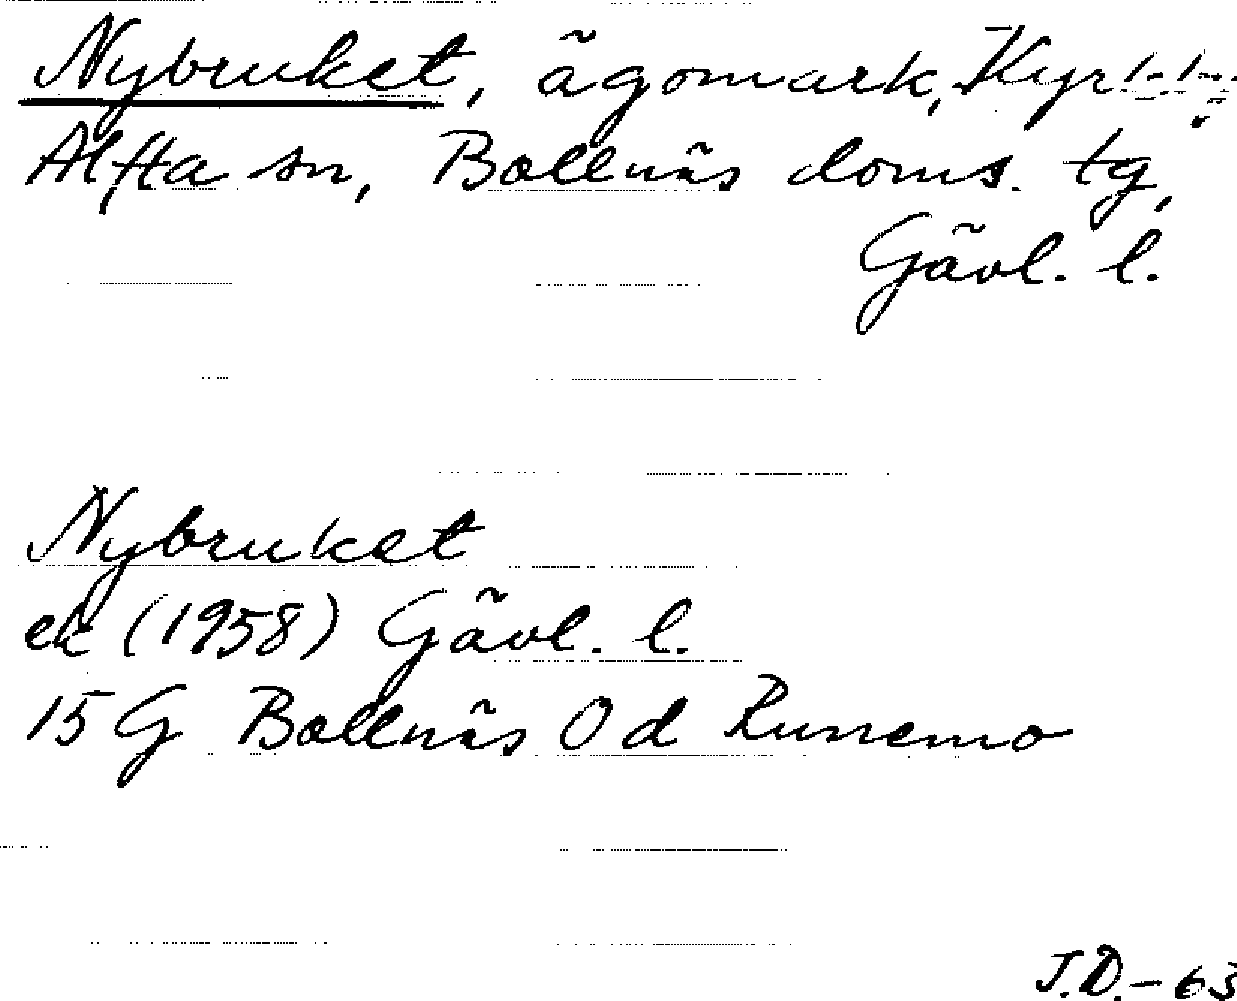 Nybruket, ägomark,
Alfta sn, Bollnäs doms. tg,
Gävl. l.
Nybruket
ek (1958) Gävl. l.
15 G Bollnäs 0 d Runemo
J.D. - 63